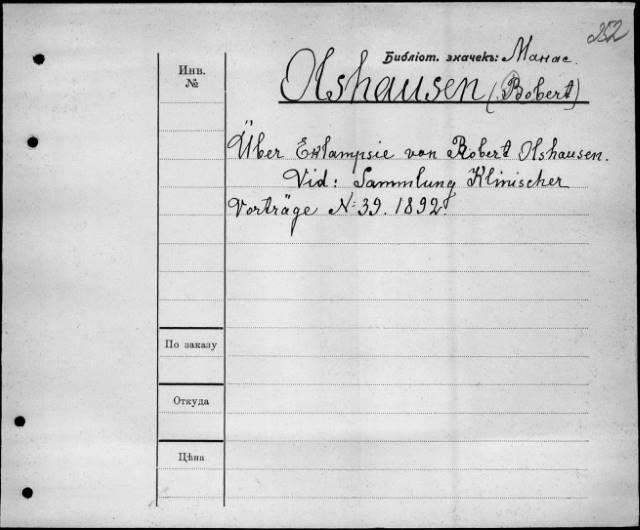 252
Библіот. значекъ: Манас.
Инв.
№
Olshausen (Robert)
Über Eklampsie von Robert Olshausen.
Vid: Sammlung Klinischer
Vorträge N: 39. 1892.
По заказу
Откуда
Цѣна